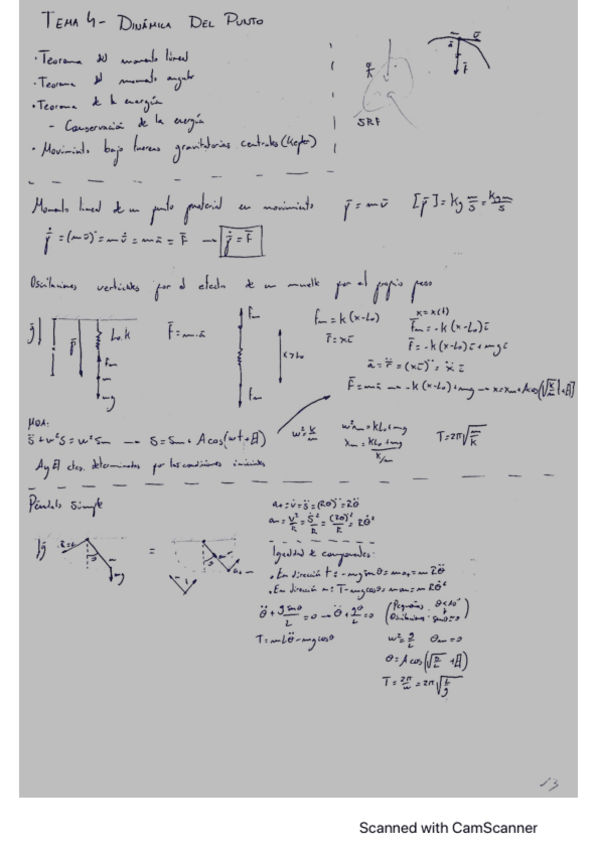 TEMA 4- DINÁMICA DEL PUNTO
· Teorema del momento lineal
· Teorema del momento angular
· Teorema de la energía
- Conservación de la energía
· Movimiento bajo fuerzas gravitatorias centrales (Kepler)
SRF
Momento lineal de un punto material en movimiento p̄ = m v̄ [p̄] = kg m/s = kg m/s
ṗ = (m v̄)˙ = m v̇ = m ā = F̄ → ṗ = F̄
Oscilaciones verticales por el efecto de un muelle por el propio peso
ḡ
p̄
L₀, k
Fm
m
mg
F̄ = m·ā
Fm
Fm
x > L₀
Fm = k (x - L₀) x = x(t)
r̄ = x ī F̄m = -k (x - L₀) ī
F̄ = -k (x - L₀) ī + mg ī
ā = r̈ = (x ī)¨ = ẍ ī
MOA:
s̈ + w² s = w² sm → s = sm + A cos(wt + )
w² = k/m w² xm = kL₀ + mg T = 2π√(m/k)
A y ctes. determinadas por las condiciones iniciales
Péndulo Simple
ḡ
mg
=
at = v̇ = s̈ = (Rθ)¨ = Rθ̈
Igualdad de componentes:
· En dirección t: - mg sin θ = m at = m Rθ̈
· En dirección n: T - mg cos θ = m an = m Rθ̇²
θ̈ + g sin θ / L = 0 → θ̈ + gθ / L = 0 (Pequeñas Oscilaciones
w² = g/L θm = 0
T = 2π/w = 2π√(L/g)
13
Scanned with CamScanner